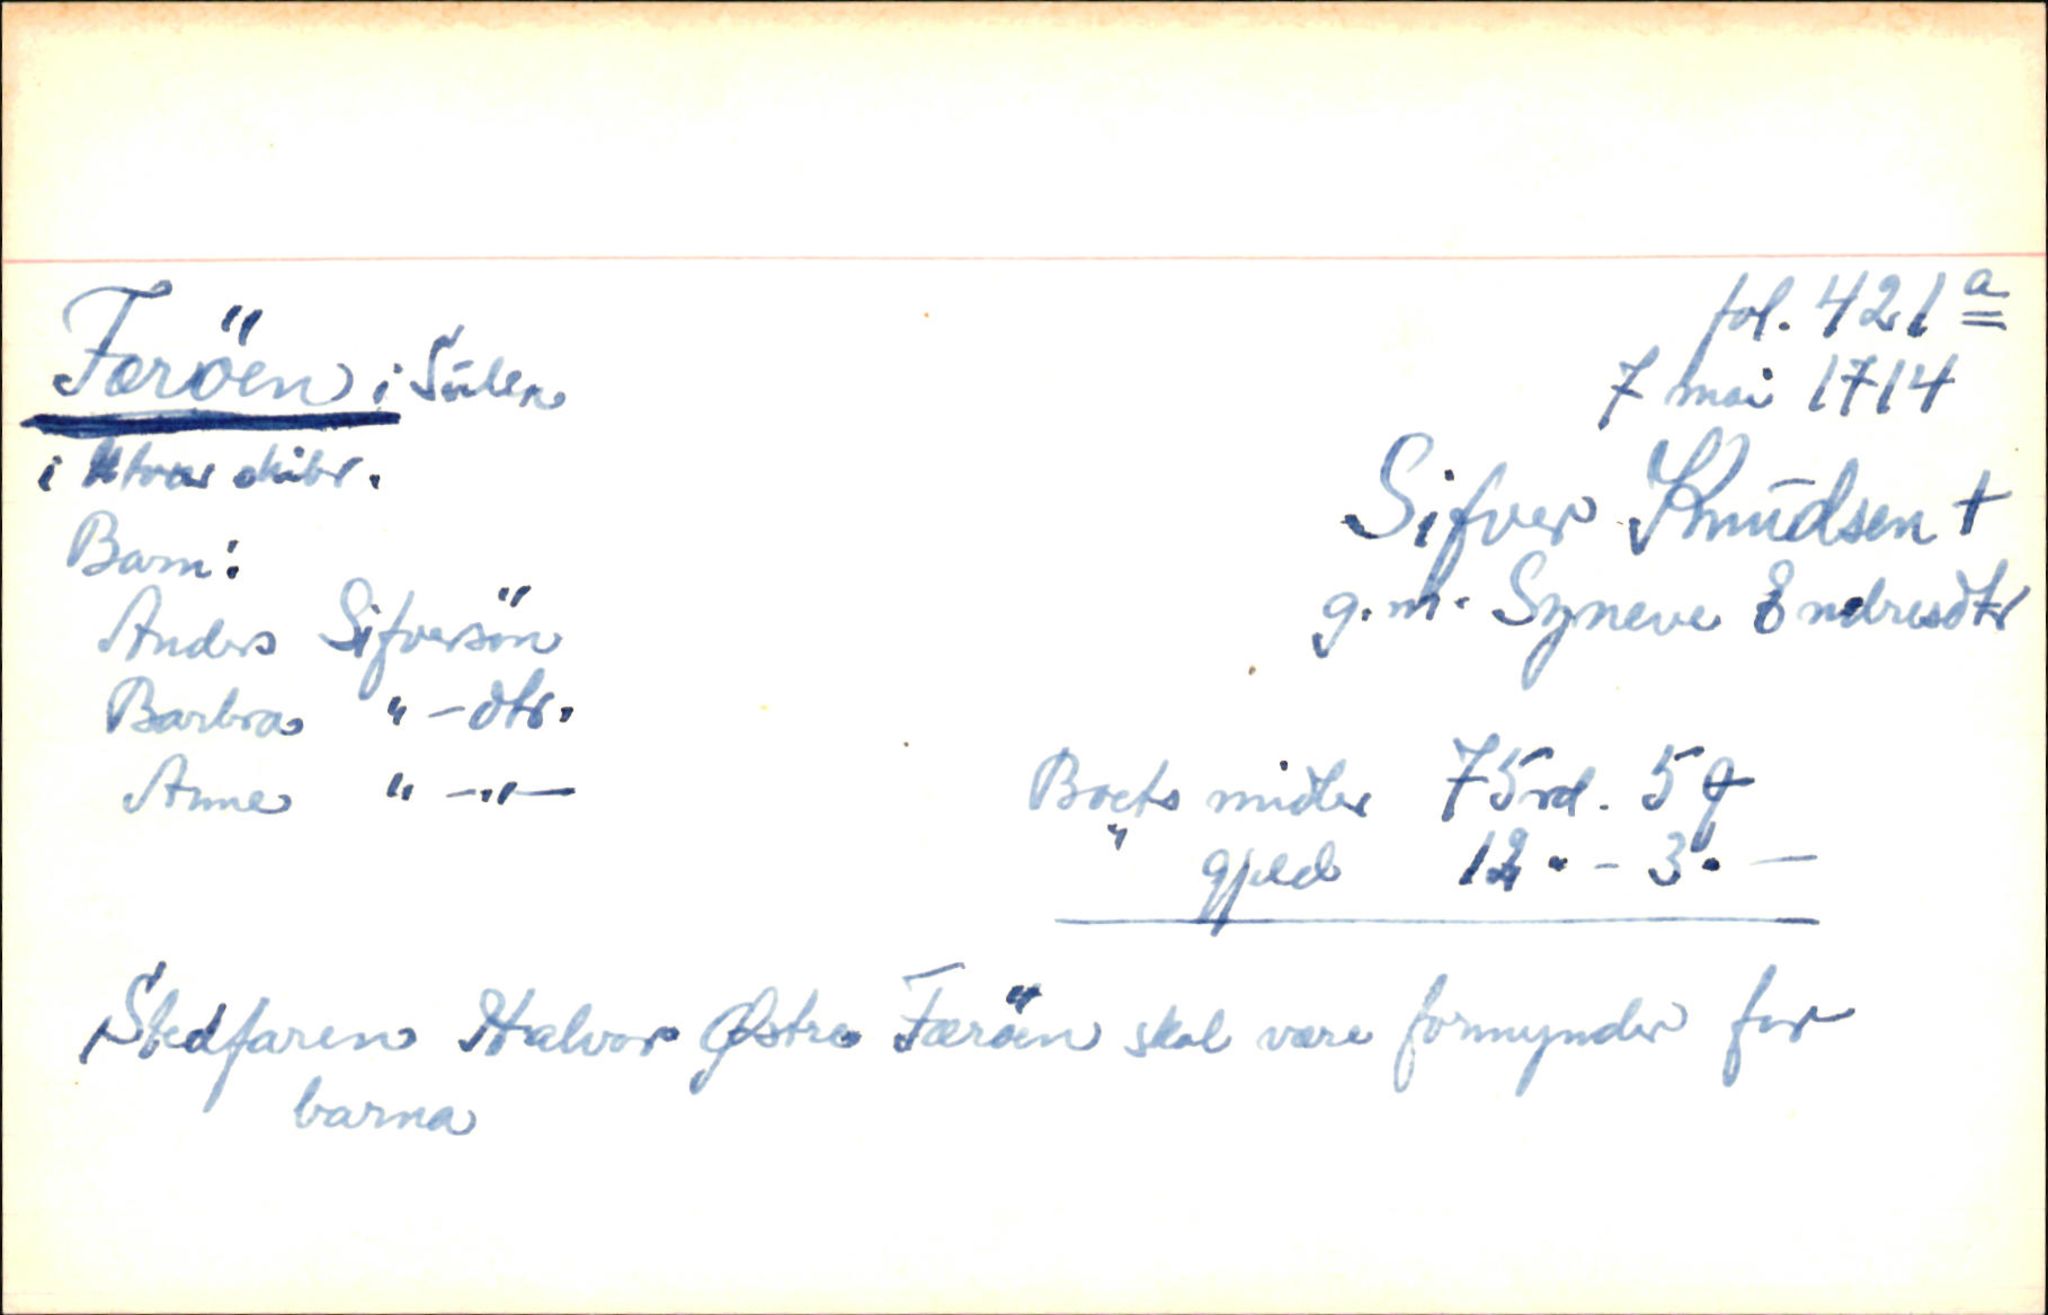 fol. 421 a
Færöen i Sūlen
7 mai 1714
i Utvær skibr.
Sifver Knūdsen +
Barn:
g.m. Syneve Endresdtr
Anders Sifversön
Barbra " – dtr.
Anne " – " –
Boets midler 75 rd. 5
" gjeld 12 " – 3 " –
Stedfaren Halvor Østre Færöen skal være formynder for
barna